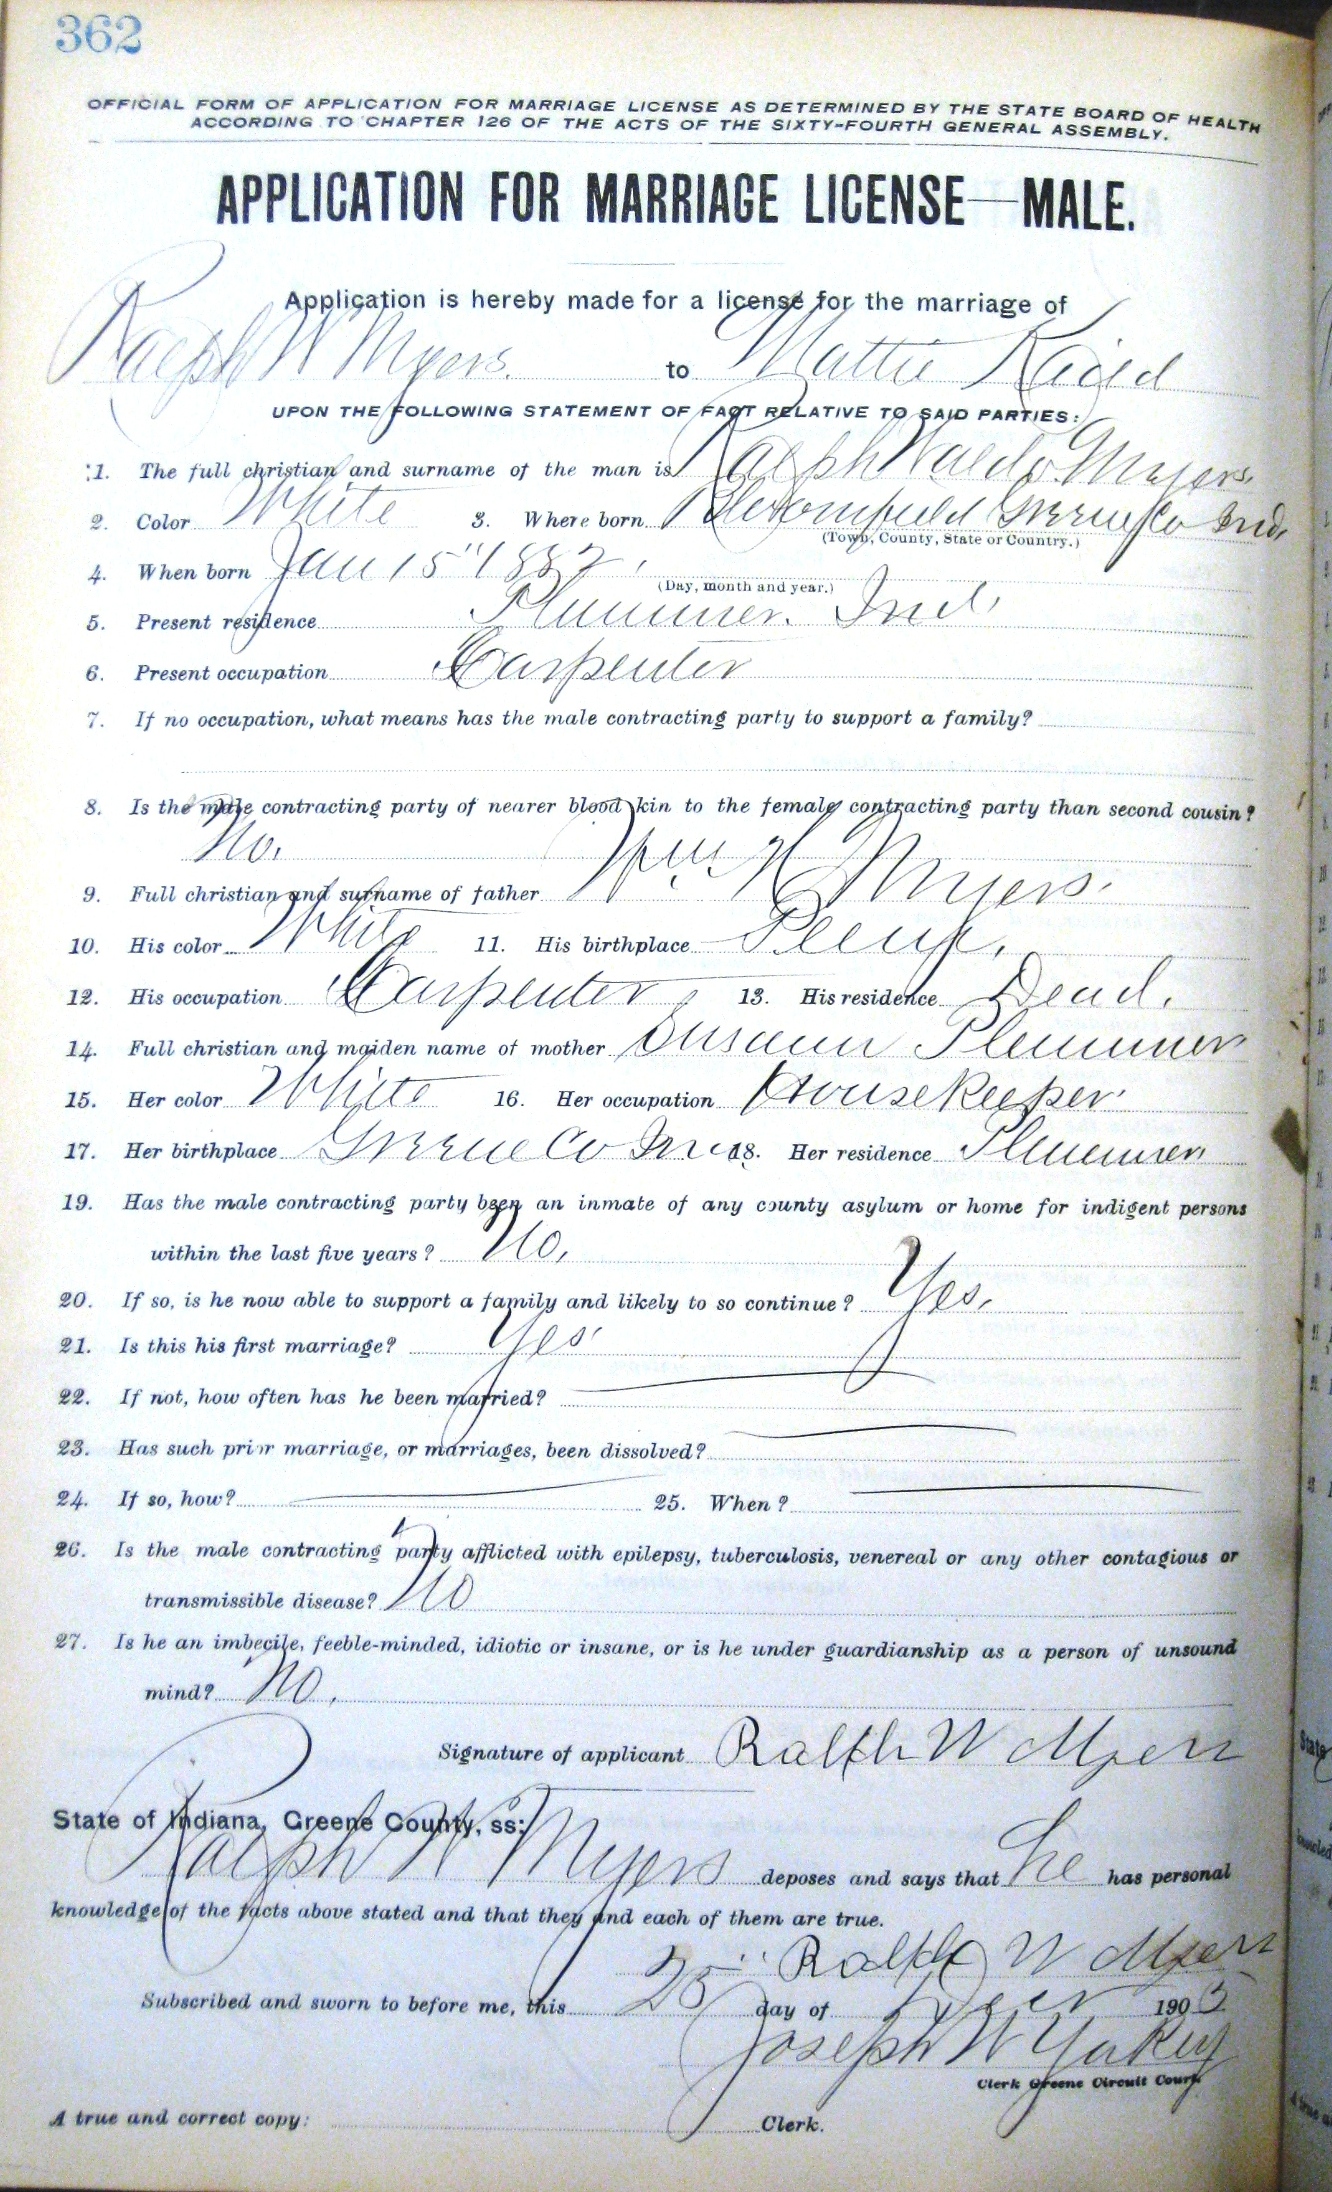 362
OFFICIAL FORM OF APPLICATION FOR MARRIAGE LICENSE AS DETERMINED BY THE STATE BOARD OF HEALTH
ACCORDING TO CHAPTER 126 OF THE ACTS OF THE SIXTY-FOURTH GENERAL ASSEMBLY.
APPLICATION FOR MARRIAGE LICENSE—MALE.
Application is hereby made for a license for the marriage of
Ralph W Myers. to Mattie Kidd
UPON THE FOLLOWING STATEMENT OF FACT RELATIVE TO SAID PARTIES:
1. The full christian and surname of the man is Ralph Waldo Myers.
2. Color White 3. Where born Bloomfield Greene Co Ind,
(Town, County, State or Country.)
4. When born Jan 15" 1882.
(Day, month and year.)
5. Present residence Plummer. Ind.
6. Present occupation Carpenter
7. If no occupation, what means has the male contracting party to support a family?
8. Is the male contracting party of nearer blood kin to the female contracting party than second cousin?
No.
9. Full christian and surname of father Wm H Myers.
10. His color White 11. His birthplace Penn.
12. His occupation Carpenter, 13. His residence Dead.
14. Full christian and maiden name of mother Susann Plummer
15. Her color White 16. Her occupation Housekeeper
17. Her birthplace Greene Co Ind. 18. Her residence Plummer
19. Has the male contracting party been an inmate of any county asylum or home for indigent persons
within the last five years? No,
20. If so, is he now able to support a family and likely to so continue? Yes,
21. Is this his first marriage? Yes
22. If not, how often has he been married?
23. Has such prior marriage, or marriages, been dissolved?
24. If so, how? 25. When?
26. Is the male contracting party afflicted with epilepsy, tuberculosis, venereal or any other contagious or
transmissible disease? No
27. Is he an imbecile, feeble-minded, idiotic or insane, or is he under guardianship as a person of unsound
mind? No.
Signature of applicant Ralph W Myers
State of Indiana, Greene County, ss:
Ralph W Myers deposes and says that he has personal
knowledge of the facts above stated and that they and each of them are true.
Ralph W Myers
Subscribed and sworn to before me, this 25" day of Decr 1905
Joseph W Yakey
Clerk Greene Circuit Court
A true and correct copy: Clerk.